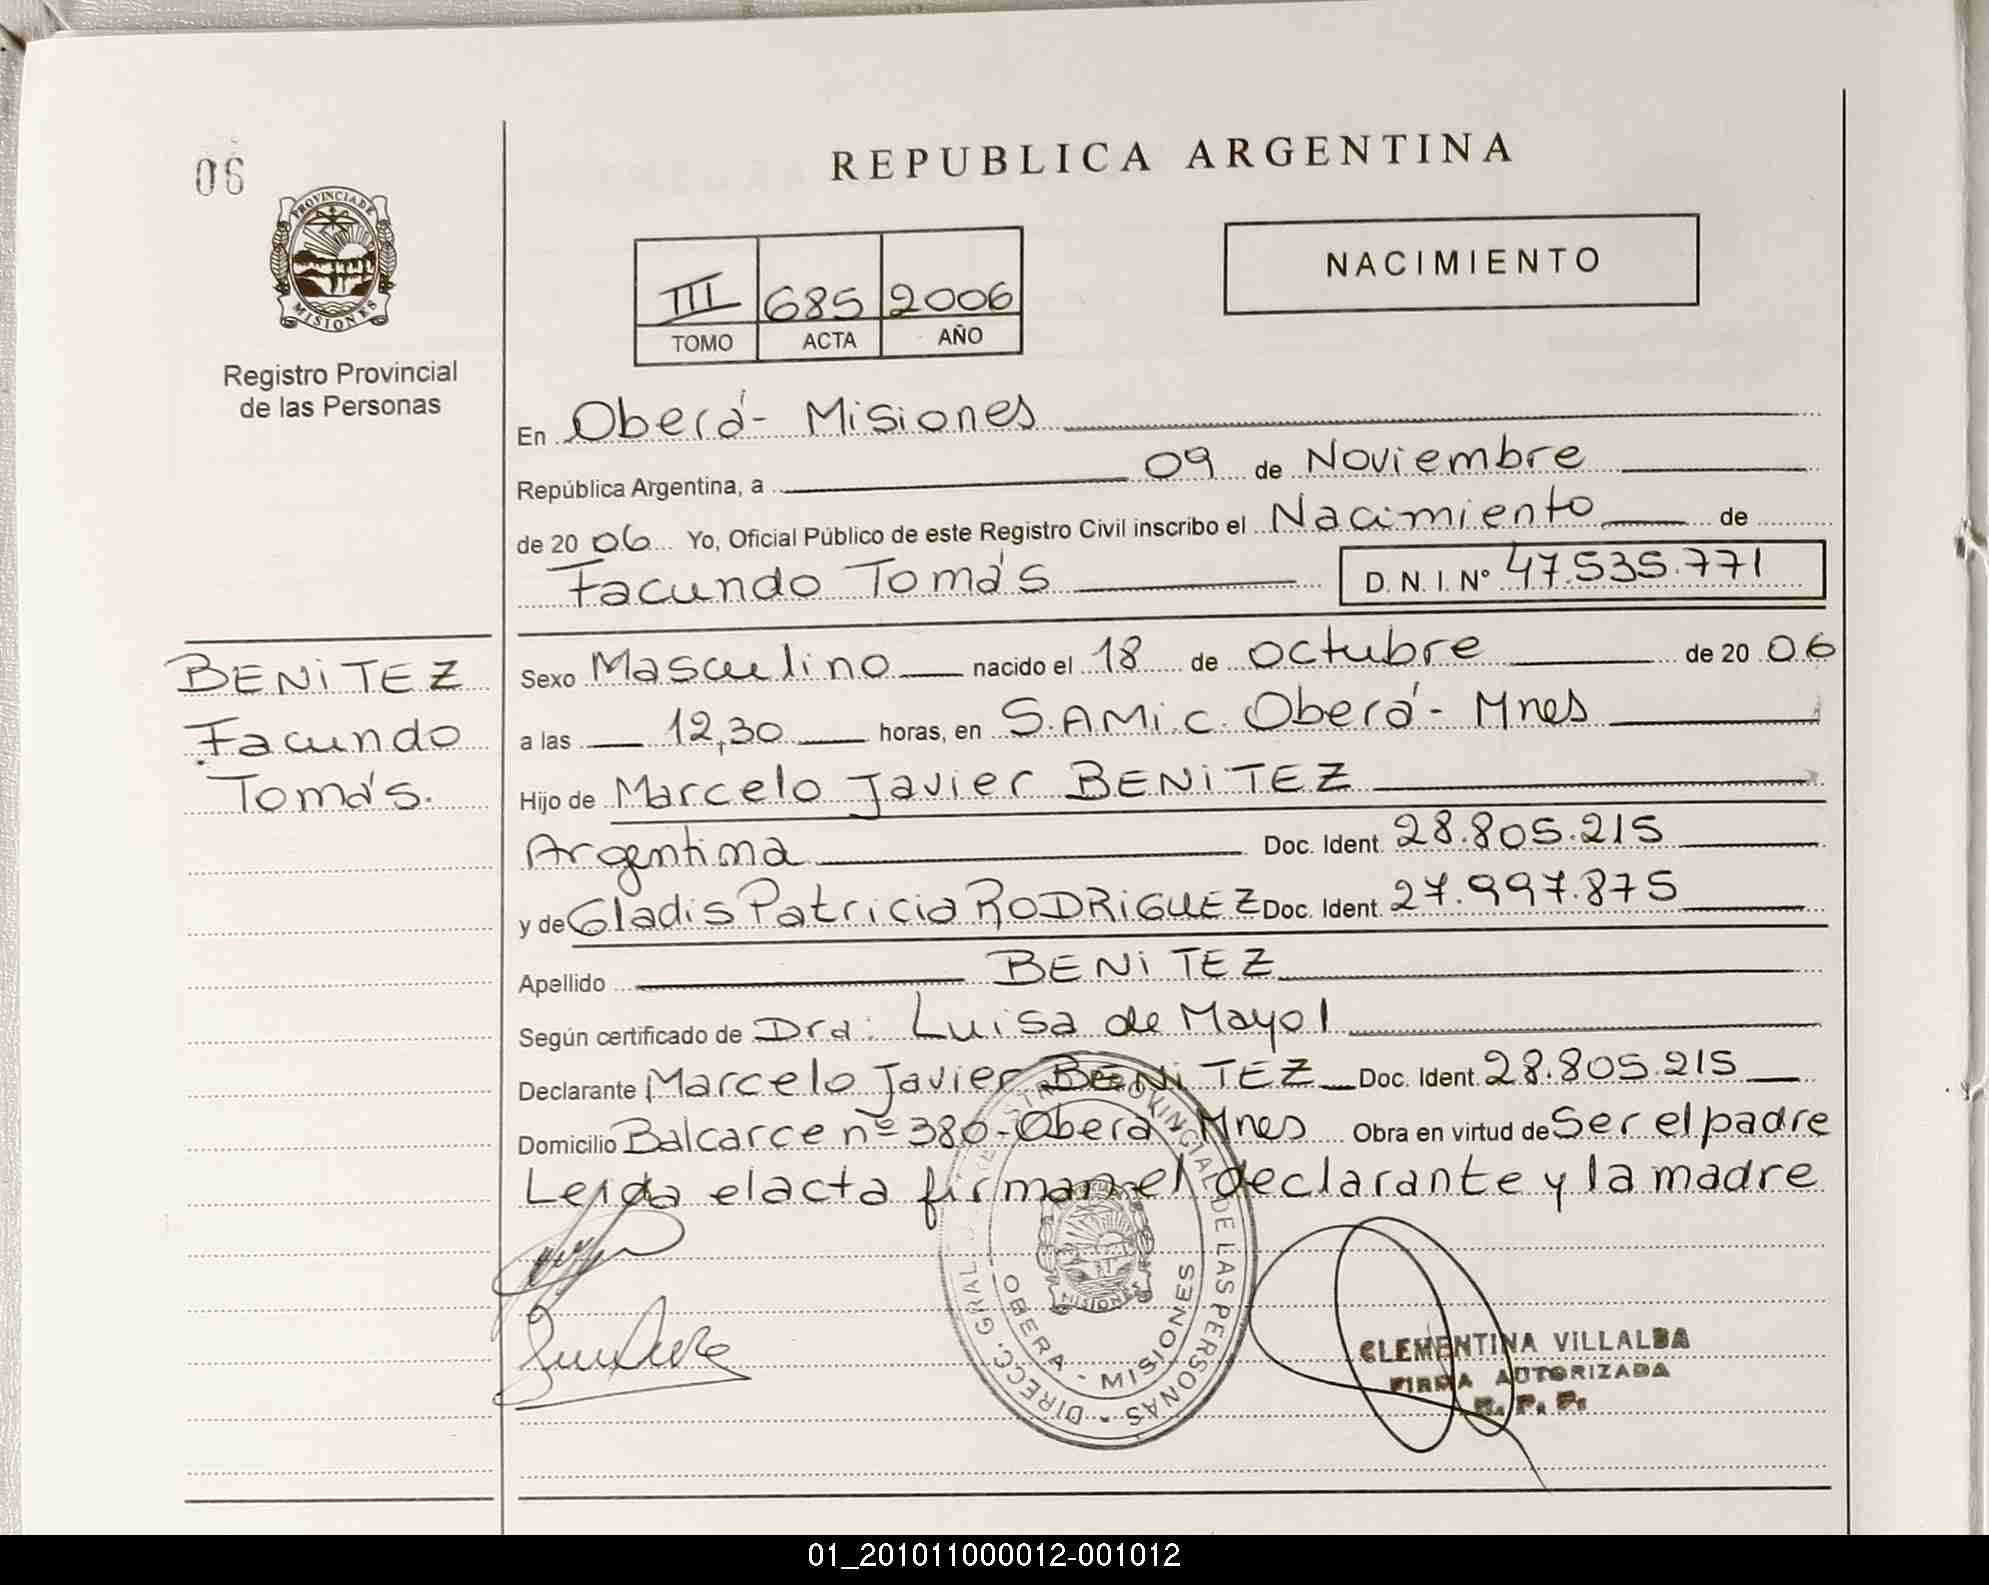 06
REPUBLICA ARGENTINA
PROVINCIA DE
MISIONES
Registro Provincial
de las Personas
III 685 2006
TOMO ACTA AÑO
NACIMIENTO
En Oberá - Misiones
República Argentina, a 09 de Noviembre
de 20 06 Yo, Oficial Público de este Registro Civil inscribo el Nacimiento de
Facundo Tomás D. N. I. Nº 47.535.771
BENITEZ
Facundo
Tomás.
Sexo Masculino nacido el 18 de octubre de 20 06
a las 12,30 horas, en S.AMi.C. Oberá - Mnes
Hijo de Marcelo Javier BENITEZ
Argentina Doc. Ident. 28.805.215
y de Gladis Patricia RODRIGUEZ Doc. Ident. 27.997.875
Apellido BENITEZ
Según certificado de Dra: Luisa de Mayol
Declarante Marcelo Javier BENITEZ Doc. Ident. 28.805.215
Domicilio Balcarce nº 380 - Oberá Mnes Obra en virtud de Ser el padre
Leida el acta firman el declarante y la madre
DIRECC. GRAL. REGISTRO PROVINCIAL DE LAS PERSONAS
OBERA - MISIONES
MISIONES
CLEMENTINA VILLALBA
FIRMA AUTORIZADA
R. P. P.
01_201011000012-001012